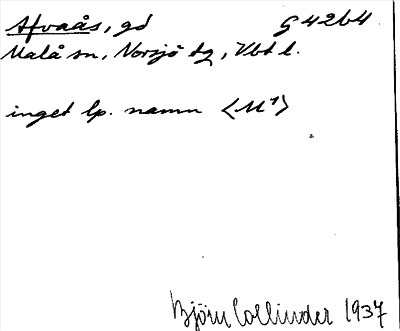 Afvaås, gd G 4264
Malå sn, Norsjö tg, Vbt l.
inget lp. namn <M¹>
Björn Collinder 1937